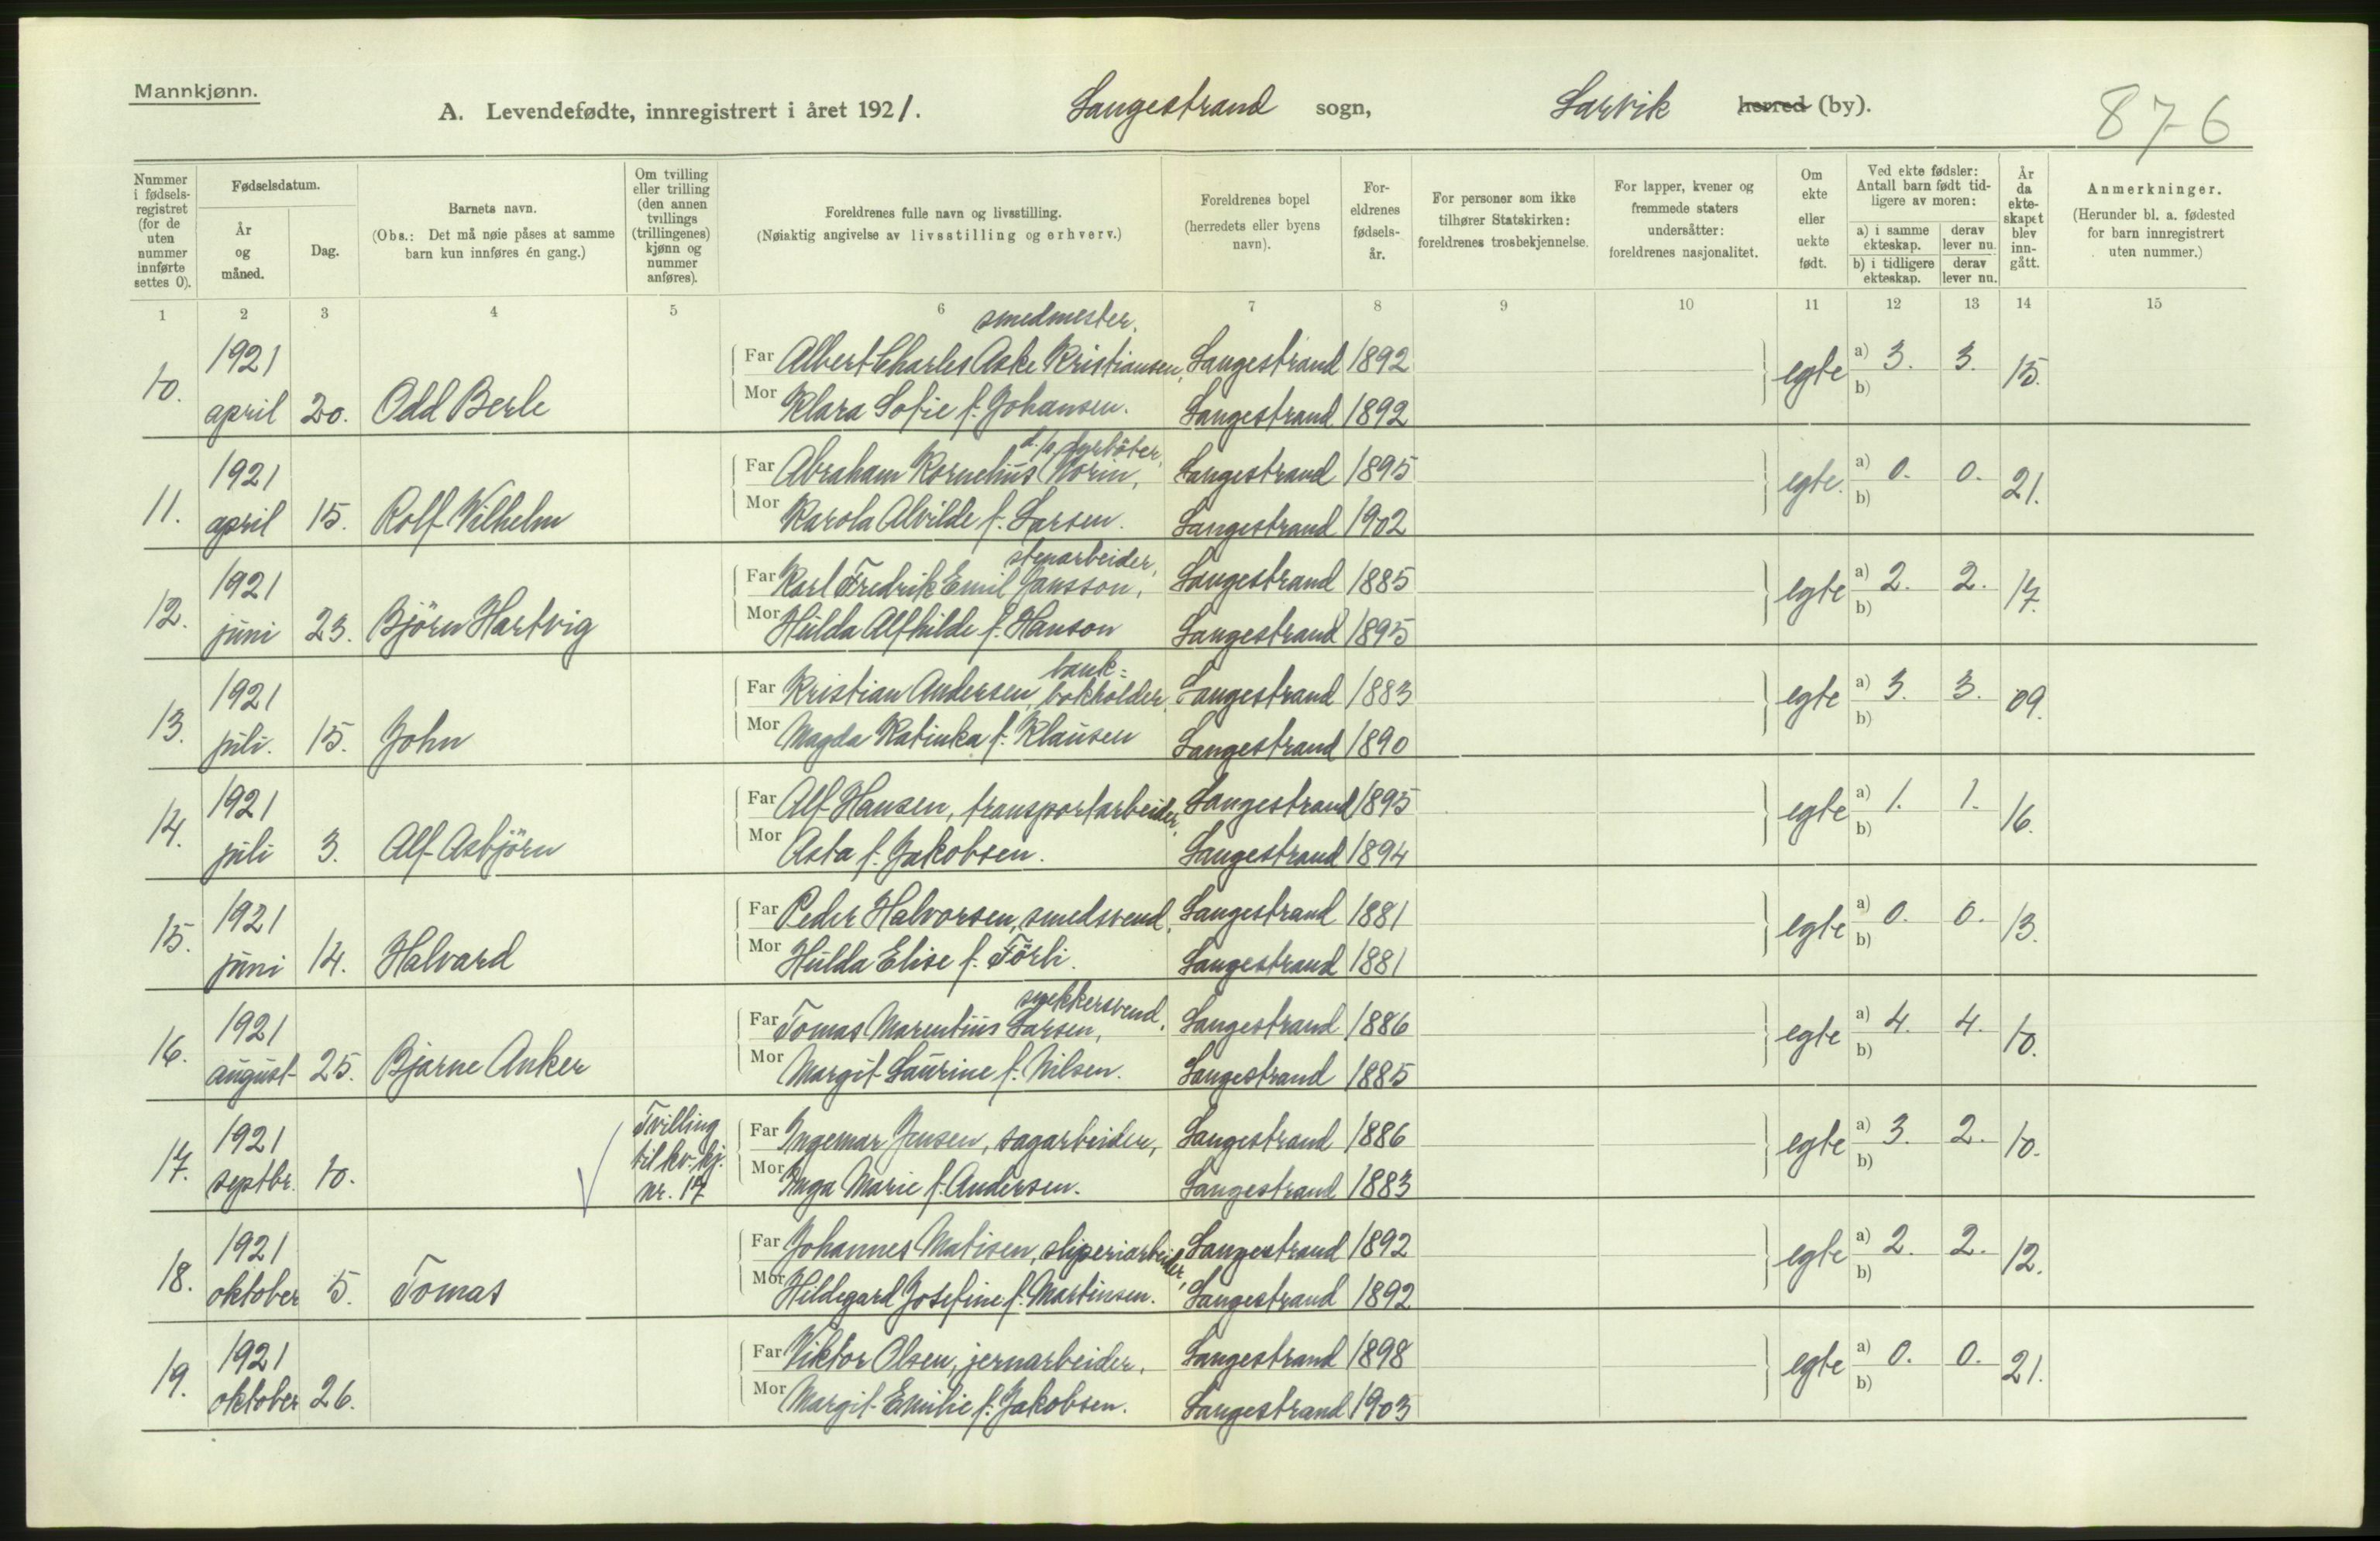 Mannkjønn.
A. Levendefødte, innregistrert i året 1921. Langestrand sogn, Larvik herred (by). 876
Nummer i fødsels-registret (for de uten nummer innførte settes 0).
Fødselsdatum.
År og måned.
Dag.
Barnets navn.
(Obs.: Det må nøie påses at samme barn kun innføres én gang.)
Om tvilling eller trilling (den annen tvillings (trillingenes) kjønn og nummer anføres).
Foreldrenes fulle navn og livsstilling.
(Nøiaktig angivelse av livsstilling og erhverv.)
Foreldrenes bopel
(herredets eller byens navn).
For-eldrenes fødsels-år.
For personer som ikke tilhører Statskirken: foreldrenes trosbekjennelse.
For lapper, kvener og fremmede staters undersåtter: foreldrenes nasjonalitet.
Om ekte eller uekte født.
Ved ekte fødsler: Antall barn født tid-ligere av moren:
a) i samme ekteskap. derav lever nu.
b) i tidligere ekteskap. derav lever nu.
År da ekte-skapet blev inn-gått.
Anmerkninger.
(Herunder bl. a. fødested for barn innregistrert uten nummer.)
1 2 3 4 5 6 7 8 9 10 11 12 13 14 15
smedmester.
10. 1921 april 20. Odd Berle
Far Albert Charles Aske Kristiansen, Langestrand 1892 egte a) 3. 3. 15.
Mor Klara Sofie f. Johansen. Langestrand 1892 b)
d/s fyrböter,
11. 1921 april 15. Rolf Vilhelm
Far Abraham Kornelius Norin, Langestrand 1895 egte. a) 0. 0. 21.
Mor Karola Alvilde f. Larsen. Langestrand 1902 b)
stenarbeider,
12. 1921 juni 23. Björn Hartvig
Far Karl Fredrik Emil Jansson, Langestrand 1885 egte a) 2. 2. 17.
Mor Hulda Alfhilde f. Hanson Langestrand 1895 b)
bank=
13. 1921 juli. 15. John
Far Kristian Andersen, bokholder, Langestrand 1883 egte a) 3. 3. 09.
Mor Magda Katinka f. Klausen Langestrand 1890 b)
14. 1921 juli 3. Alf Asbjörn
Far Alf Hansen, transportarbeider, Langestrand 1895 egte a) 1. 1. 16.
Mor Asta f. Jakobsen. Langestrand 1894 b)
15. 1921 juni 14. Halvard
Far Peder Halvorsen, smedsvend, Langestrand 1881 egte a) 0. 0. 13.
Mor Hulda Elise f. Törli. Langestrand 1881 b)
snekkersvend.
16. 1921 august 25. Bjarne Anker
Far Tomas Marentius Larsen, Langestrand 1886 egte a) 4. 4. 10.
Mor Margit Laurine f. Nilsen. Langestrand 1885 b)
17. 1921 septbr. 10. Tvilling til kv. kj. nr. 17
Far Ingemar Jensen, sagarbeider, Langestrand 1886 egte a) 3. 2. 10.
Mor Inga Marie f. Andersen. Langestrand 1883 b)
18. 1921 oktober 5. Tomas
Far Johannes Matisen, sliperiarbeider, Langestrand 1892 egte a) 2. 2. 12.
Mor Hildegard Josefine f. Martinsen. Langestrand 1892 b)
19. 1921 oktober 26.
Far Viktor Olsen, jernarbeider. Langestrand 1898 egte a) 0. 0. 21.
Mor Margit Emilie f. Jakobsen. Langestrand 1903 b)